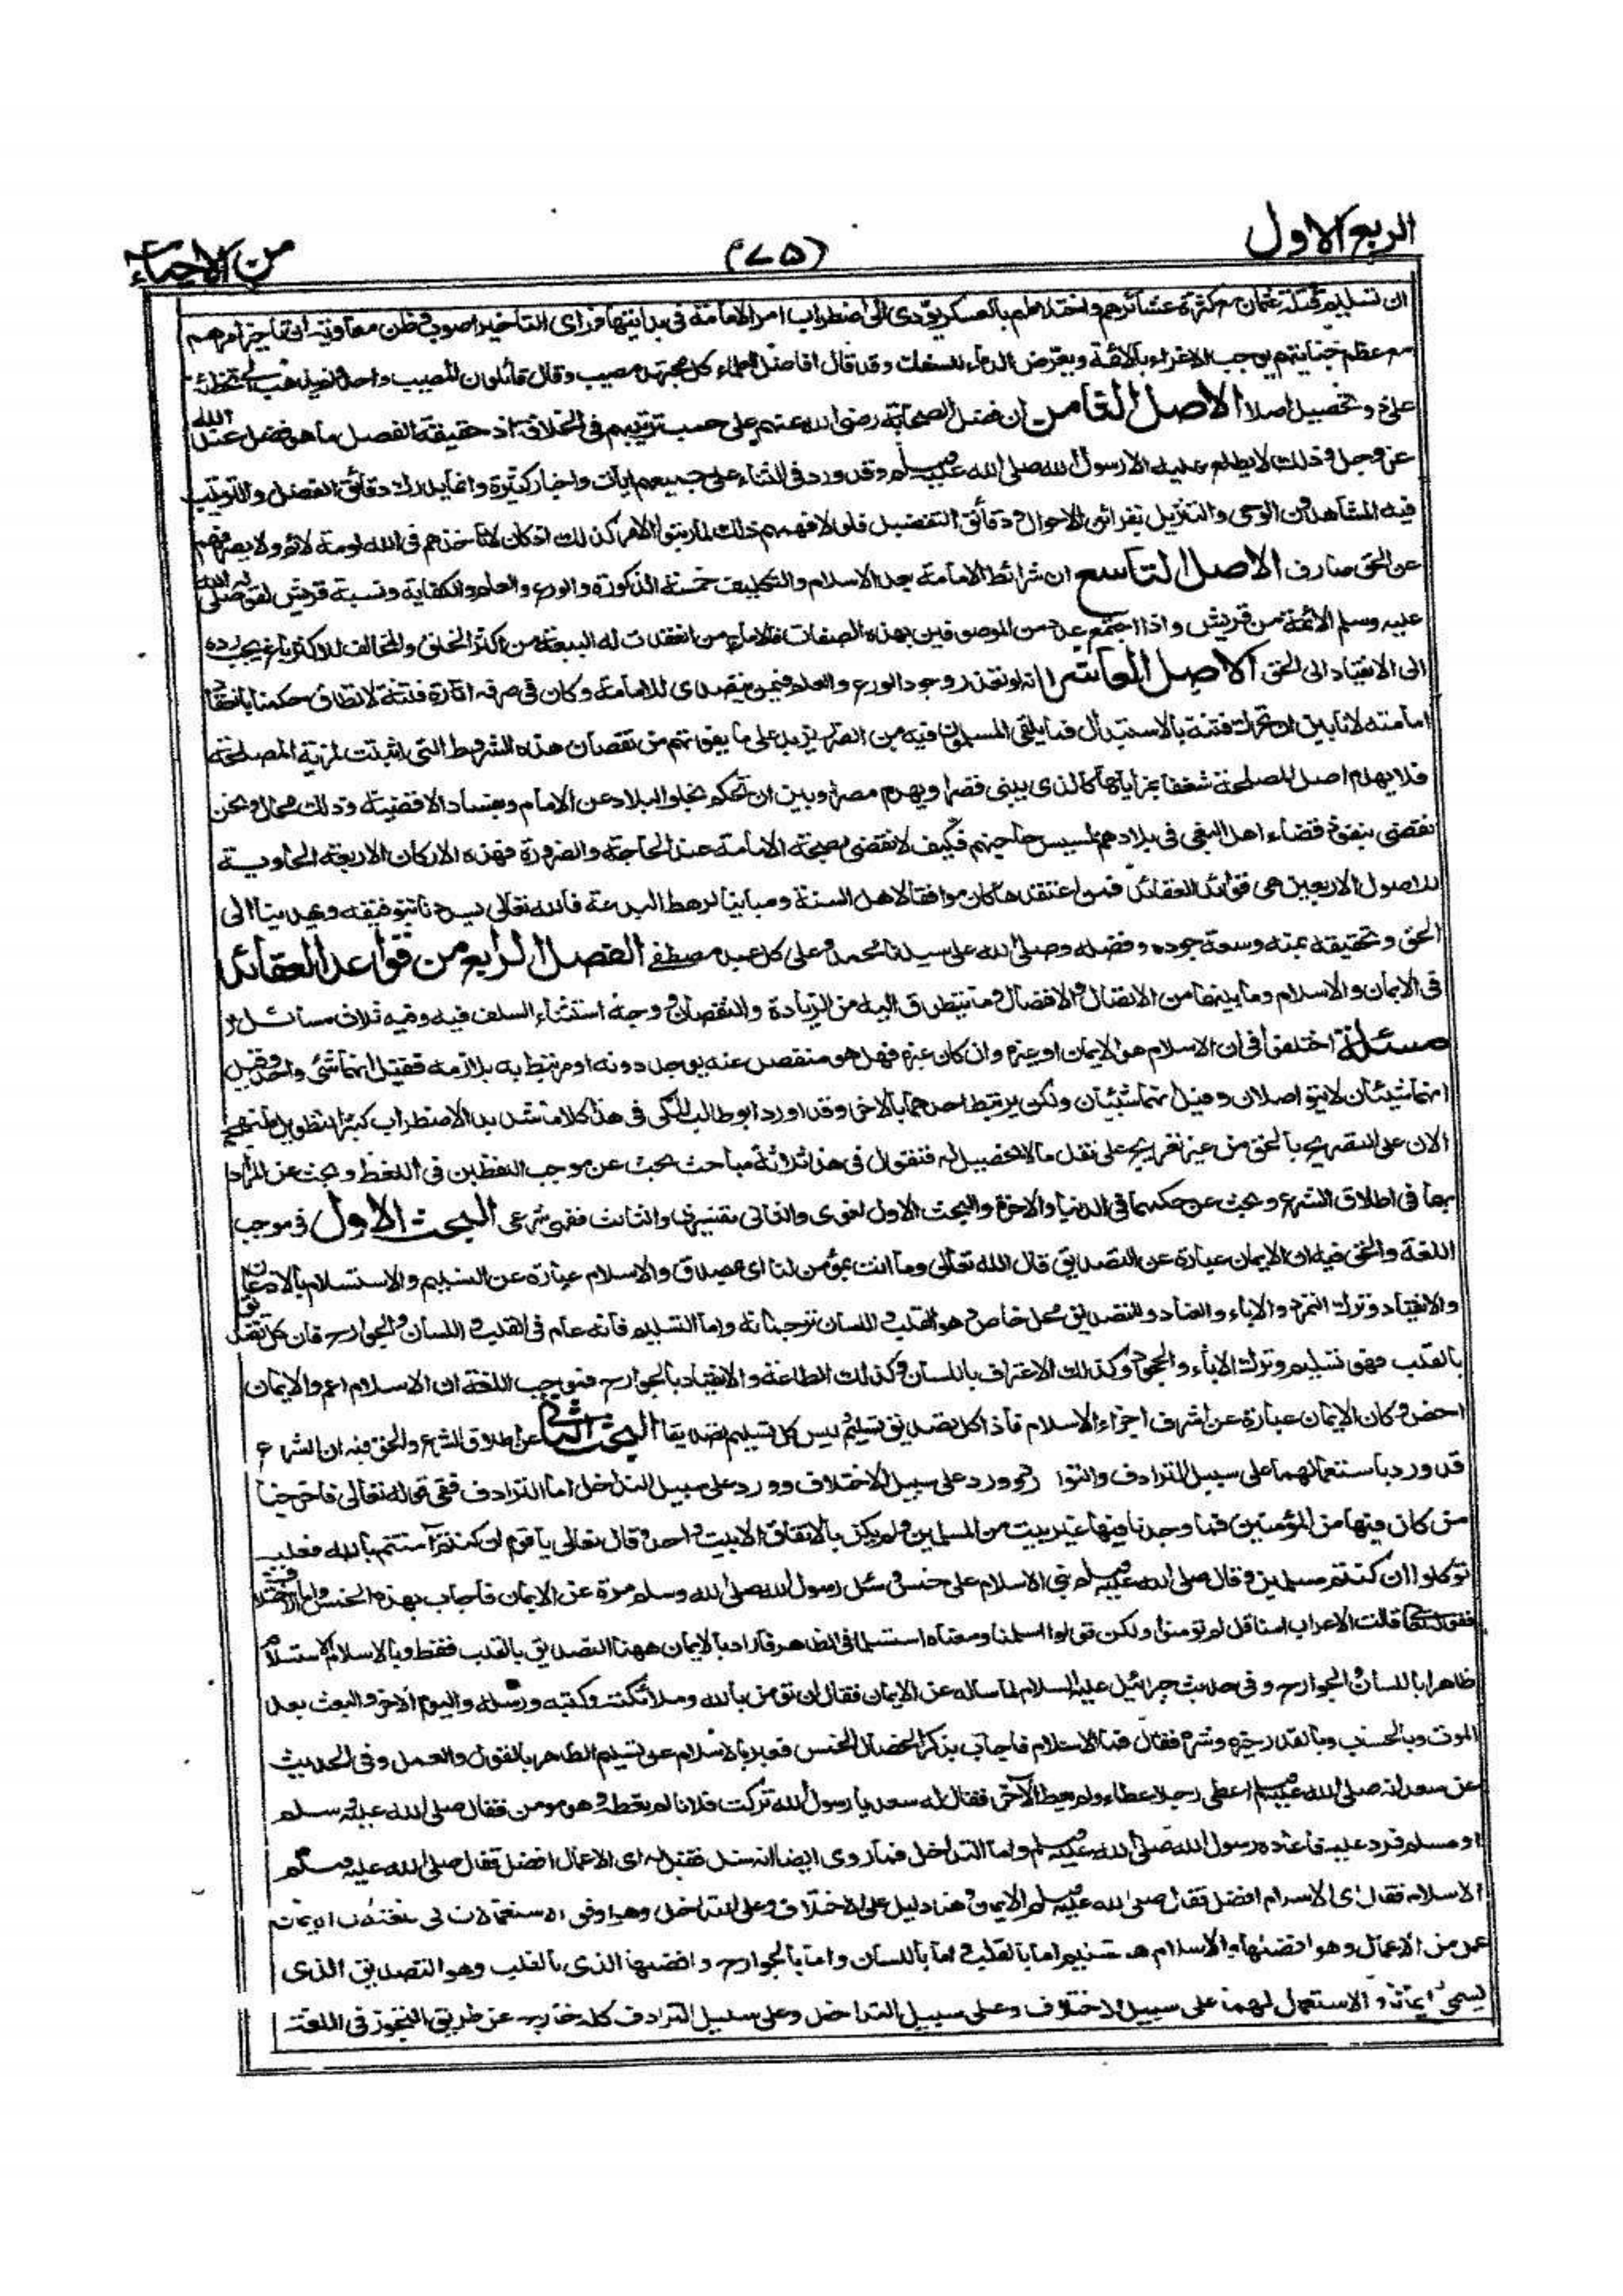 الربع الاول
(٧٥)
من الاحياء
ان تسليم قتلة عثمان مع كثرة عشائرهم واختلاطهم بالعسكر يؤدى الى اضطراب امر الامامة فى بدايتها فرأى التأخير اصوب وظن معاوية ان تأخير امرهم
مع عظم جنايتهم يوجب الاغراء بالائمة ويعرض الدماء للسفك وقد قال افاضل العلماء كل مجتهد مصيب وقال قائلون المصيب واحد ولم يذهب الى تخطئة
على ذو تحصيل اصلا الاصل الثامن ان فضل الصحابة رضى الله عنهم على حسب ترتيبهم فى الخلافة اذ حقيقة الفضل ما هو فضل عند الله
عز وجل وذلك لا يطلع عليه الا رسول الله صلى الله عليه وسلم وقد ورد فى الثناء على جميعهم ايات واخبار كثيرة وانما يدرك دقائق الفضل والترتيب
فيه المشاهدون الوحى والتنزيل بقرائن الاحوال ودقائق التفضيل فلولا فهمهم ذلك لما رتبوا الامر كذلك اذ كان لا تأخذهم فى الله لومة لائم ولا يصرفهم
عن الحق صارف الاصل التاسع ان شرائط الامامة بعد الاسلام والتكليف خمسة الذكورة والورع والعلم والكفاية ونسبة قريش لقوله صلى الله
عليه وسلم الائمة من قريش واذا اجتمع عدد من الموصوفين بهذه الصفات فالامام من انعقدت له البيعة من اكثر الخلق والمخالف للاكثر باغ يجب رده
الى الانقياد الى الحق الاصل العاشر انه لو تعذر وجود الورع والعلم فيمن يتصدى للامامة وكان فى صرفه اثارة فتنة لا تطاق حكمنا بانعقاد
امامته لانا بين ان نحرك فتنة بالاستبدال فما يلقى المسلمون فيه من الضرر يزيد على ما يفوتهم من نقصان هذه الشروط التى اثبتت لمزية المصلحة
فلا يهدم اصل المصلحة شغفا بمزاياها كالذى يبنى قصرا ويهدم مصرا وبين ان نحكم بخلو البلاد عن الامام وبفساد الاقضية وذلك محال ونحن
نقضى بنفوذ قضاء اهل البغى فى بلادهم لمسيس حاجتهم فكيف لا نقضى بصحة الامامة عند الحاجة والضرورة فهذه الاركان الاربعة الحاوية
للاصول الاربعين هى قواعد العقائد فمن اعتقدها كان موافقا لاهل السنة ومباينا لرهط البدعة فالله تعالى يسددنا بتوفيقه ويهدينا الى
الحق وتحقيقه بمنه وسعة جوده وفضله وصلى الله على سيدنا محمد وعلى كل عبد مصطفى الفصل الرابع من قواعد العقائد
فى الايمان والاسلام وما بينهما من الاتصال والانفصال وما يتطرق اليه من الزيادة والنقصان ووجه استثناء السلف فيه وفيه ثلاث مسائل
مسئلة اختلفوا فى ان الاسلام هو الايمان او غيره وان كان غيره فهل هو منفصل عنه يوجد دونه او مرتبط به يلازمه فقيل انهما شئ واحد وقيل
انهما شيئان لا يتواصلان وقيل انهما شيئان ولكن يرتبط احدهما بالاخر وقد اورد ابو طالب المكى فى هذا كلاما شديد الاضطراب كثير التطويل فلنهجم
الان على التصريح بالحق من غير تعريج على نقل ما لا تحصيل له فنقول فى هذا ثلاثة مباحث بحث عن موجب اللفظين فى اللغة وبحث عن المراد
بهما فى اطلاق الشرع وبحث عن حكمهما فى الدنيا والاخرة والبحث الاول لغوى والثانى تفسيرى والثالث فقهى شرعى البحث الاول فى موجب
اللغة والحق فيه ان الايمان عبارة عن التصديق قال الله تعالى وما انت بمؤمن لنا اى بمصدق والاسلام عبارة عن التسليم والاستسلام بالاذعان
والانقياد وترك التمرد والاباء والعناد وللتصديق محل خاص وهو القلب واللسان ترجمانه واما التسليم فانه عام فى القلب واللسان والجوارح فان كل تصديق
بالقلب فهو تسليم وترك الاباء والجحود وكذلك الاعتراف باللسان وكذلك الطاعة والانقياد بالجوارح فموجب اللغة ان الاسلام اعم والايمان
اخص وكان الايمان عبارة عن اشرف اجزاء الاسلام فاذا كل تصديق تسليم وليس كل تسليم تصديقا البحث الثانى عن اطلاق الشرع والحق فيه ان الشرع
قد ورد باستعمالهما على سبيل الترادف والتوارد وورد على سبيل الاختلاف وورد على سبيل التداخل اما الترادف ففى قوله تعالى فاخرجنا
من كان فيها من المؤمنين فما وجدنا فيها غير بيت من المسلمين ولم يكن بالاتفاق الا بيت واحد وقال تعالى يا قوم ان كنتم امنتم بالله فعليه
توكلوا ان كنتم مسلمين وقال صلى الله عليه وسلم بنى الاسلام على خمس وسئل رسول الله صلى الله وسلم مرة عن الايمان فاجاب بهذه الخمس واما الاختلاف
فقوله تعالى قالت الاعراب امنا قل لم تؤمنوا ولكن قولوا اسلمنا ومعناه استسلمنا فى الظاهر فاراد بالايمان ههنا التصديق بالقلب فقط وبالاسلام الاستسلام
ظاهرا باللسان والجوارح وفى حديث جبرائيل عليه السلام لما ساله عن الايمان فقال ان تؤمن بالله وملائكته وكتبه ورسله واليوم الاخر والبعث بعد
الموت وبالحساب وبالقدر خيره وشره فقال فما الاسلام فاجاب بذكر الخصال الخمس فعبر بالاسلام عن تسليم الظاهر بالقول والعمل وفى الحديث
عن سعد انه صلى الله عليه وسلم اعطى رجلا عطاء ولم يعط الاخر فقال له سعد يا رسول الله تركت فلانا لم تعطه وهو مومن فقال صلى الله عليه وسلم
او مسلم فرد عليه فاعاده رسول الله صلى الله عليه وسلم واما التداخل فما روى ايضا انه سئل فقيل له اى الاعمال افضل فقال صلى الله عليه وسلم
الاسلام فقال اى الاسلام افضل فقال صلى الله عليه وسلم الايمان وهذا دليل على الاختلاف وعلى التداخل وهو اوفق الاستعمالات فى اللغة لان الايمان
عمل من الاعمال وهو افضلها والاسلام هو تسليم اما بالقلب واما باللسان واما بالجوارح وافضلها الذى بالقلب وهو التصديق الذى
يسمى ايمانا والاستعمال لهما على سبيل الاختلاف وعلى سبيل التداخل وعلى سبيل الترادف كله خارج عن طريق التجوز فى اللغة